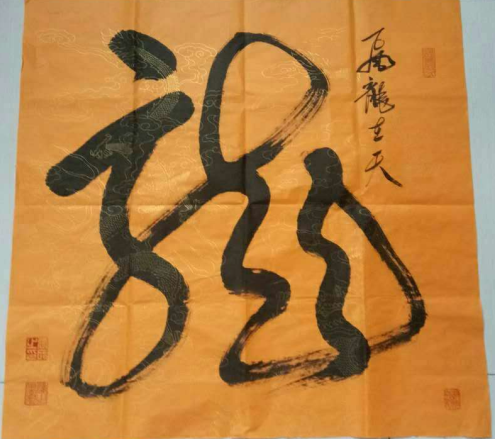 龍
飛龍在天